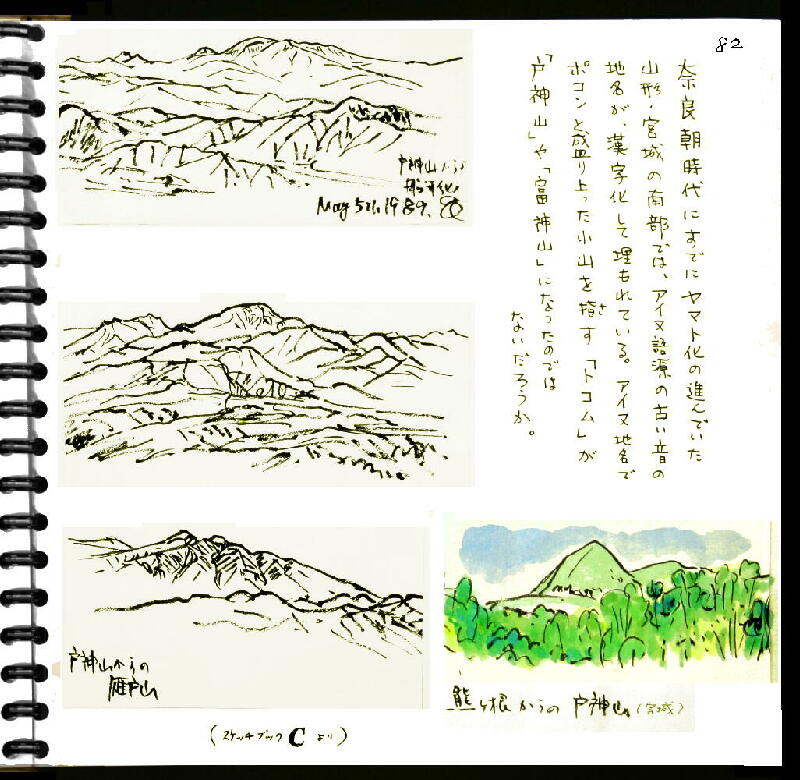 82
奈良朝時代にすでにヤマト化の進んでいた
山形・宮城の南部では、アイヌ語源の古い音の
地名が、漢字化して埋もれている。アイヌ地名で
ポコンと盛り上った小山を指す「トコム」が
さ
「戸神山」や「富神山」になったのでは
ないだろうか。
戸神山から
May 5th, 1989.
戸神山からの
雁戸山
熊ヶ根からの 戸神山 (宮城)
(スケッチブック C より)